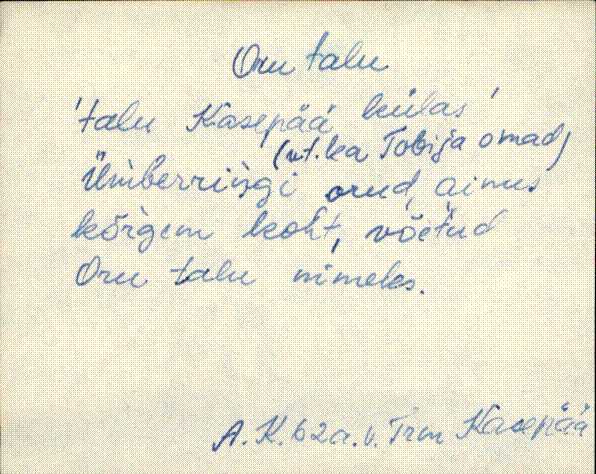 Oru talu
'talu Kasepää külas'
(vt. ka Tobija omad)
Ümberriŋgi orud, ainus
kõrgem koht, võetud
Oru talu nimeks.
A. K. 62 a. v. Trm Kasepää